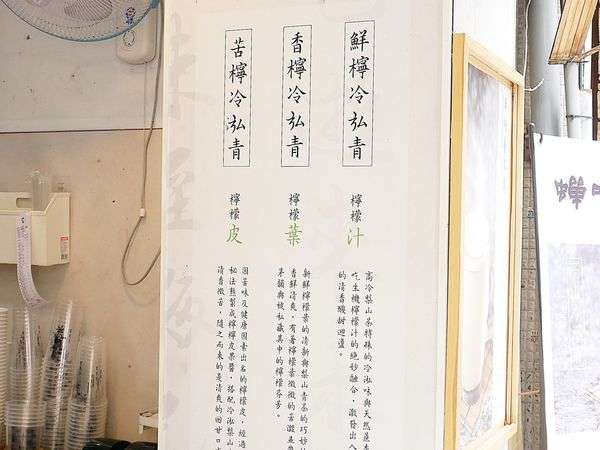 鮮檸冷泓青
檸檬
汁
高冷梨山茶特殊的冷泓味與天然蔬
吃生機檸檬汁的絕妙融合，激發出
的清香酸甜迴盪。
香檸冷泓青
檸檬
葉
新鮮檸檬葉的清新與梨山青茶的巧妙
香鮮清爽，有著檸檬葉微微的苦澀
茅韻與被私藏其中的檸檬芬芳。
苦檸冷泓青
檸檬
皮
因苦味及健康因素出名的檸檬皮，經過
秘法熬製成檸檬皮果醬，搭配冷泓梨山
清香微苦，隨之而來的是清爽的回甘口
蟬